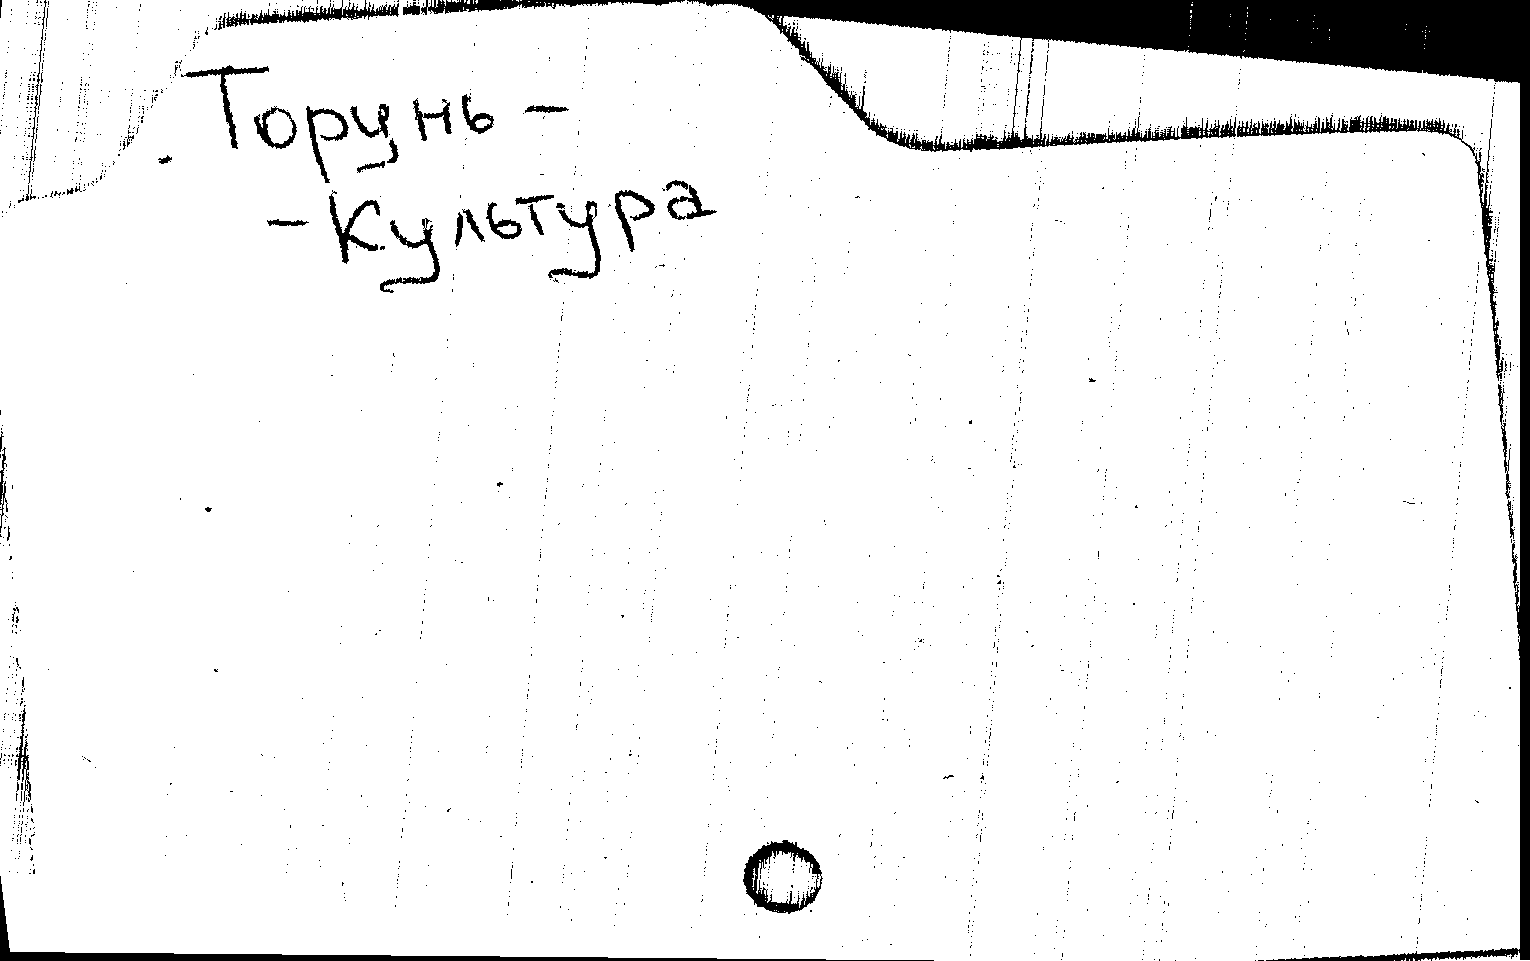 Торунь -
- Культура